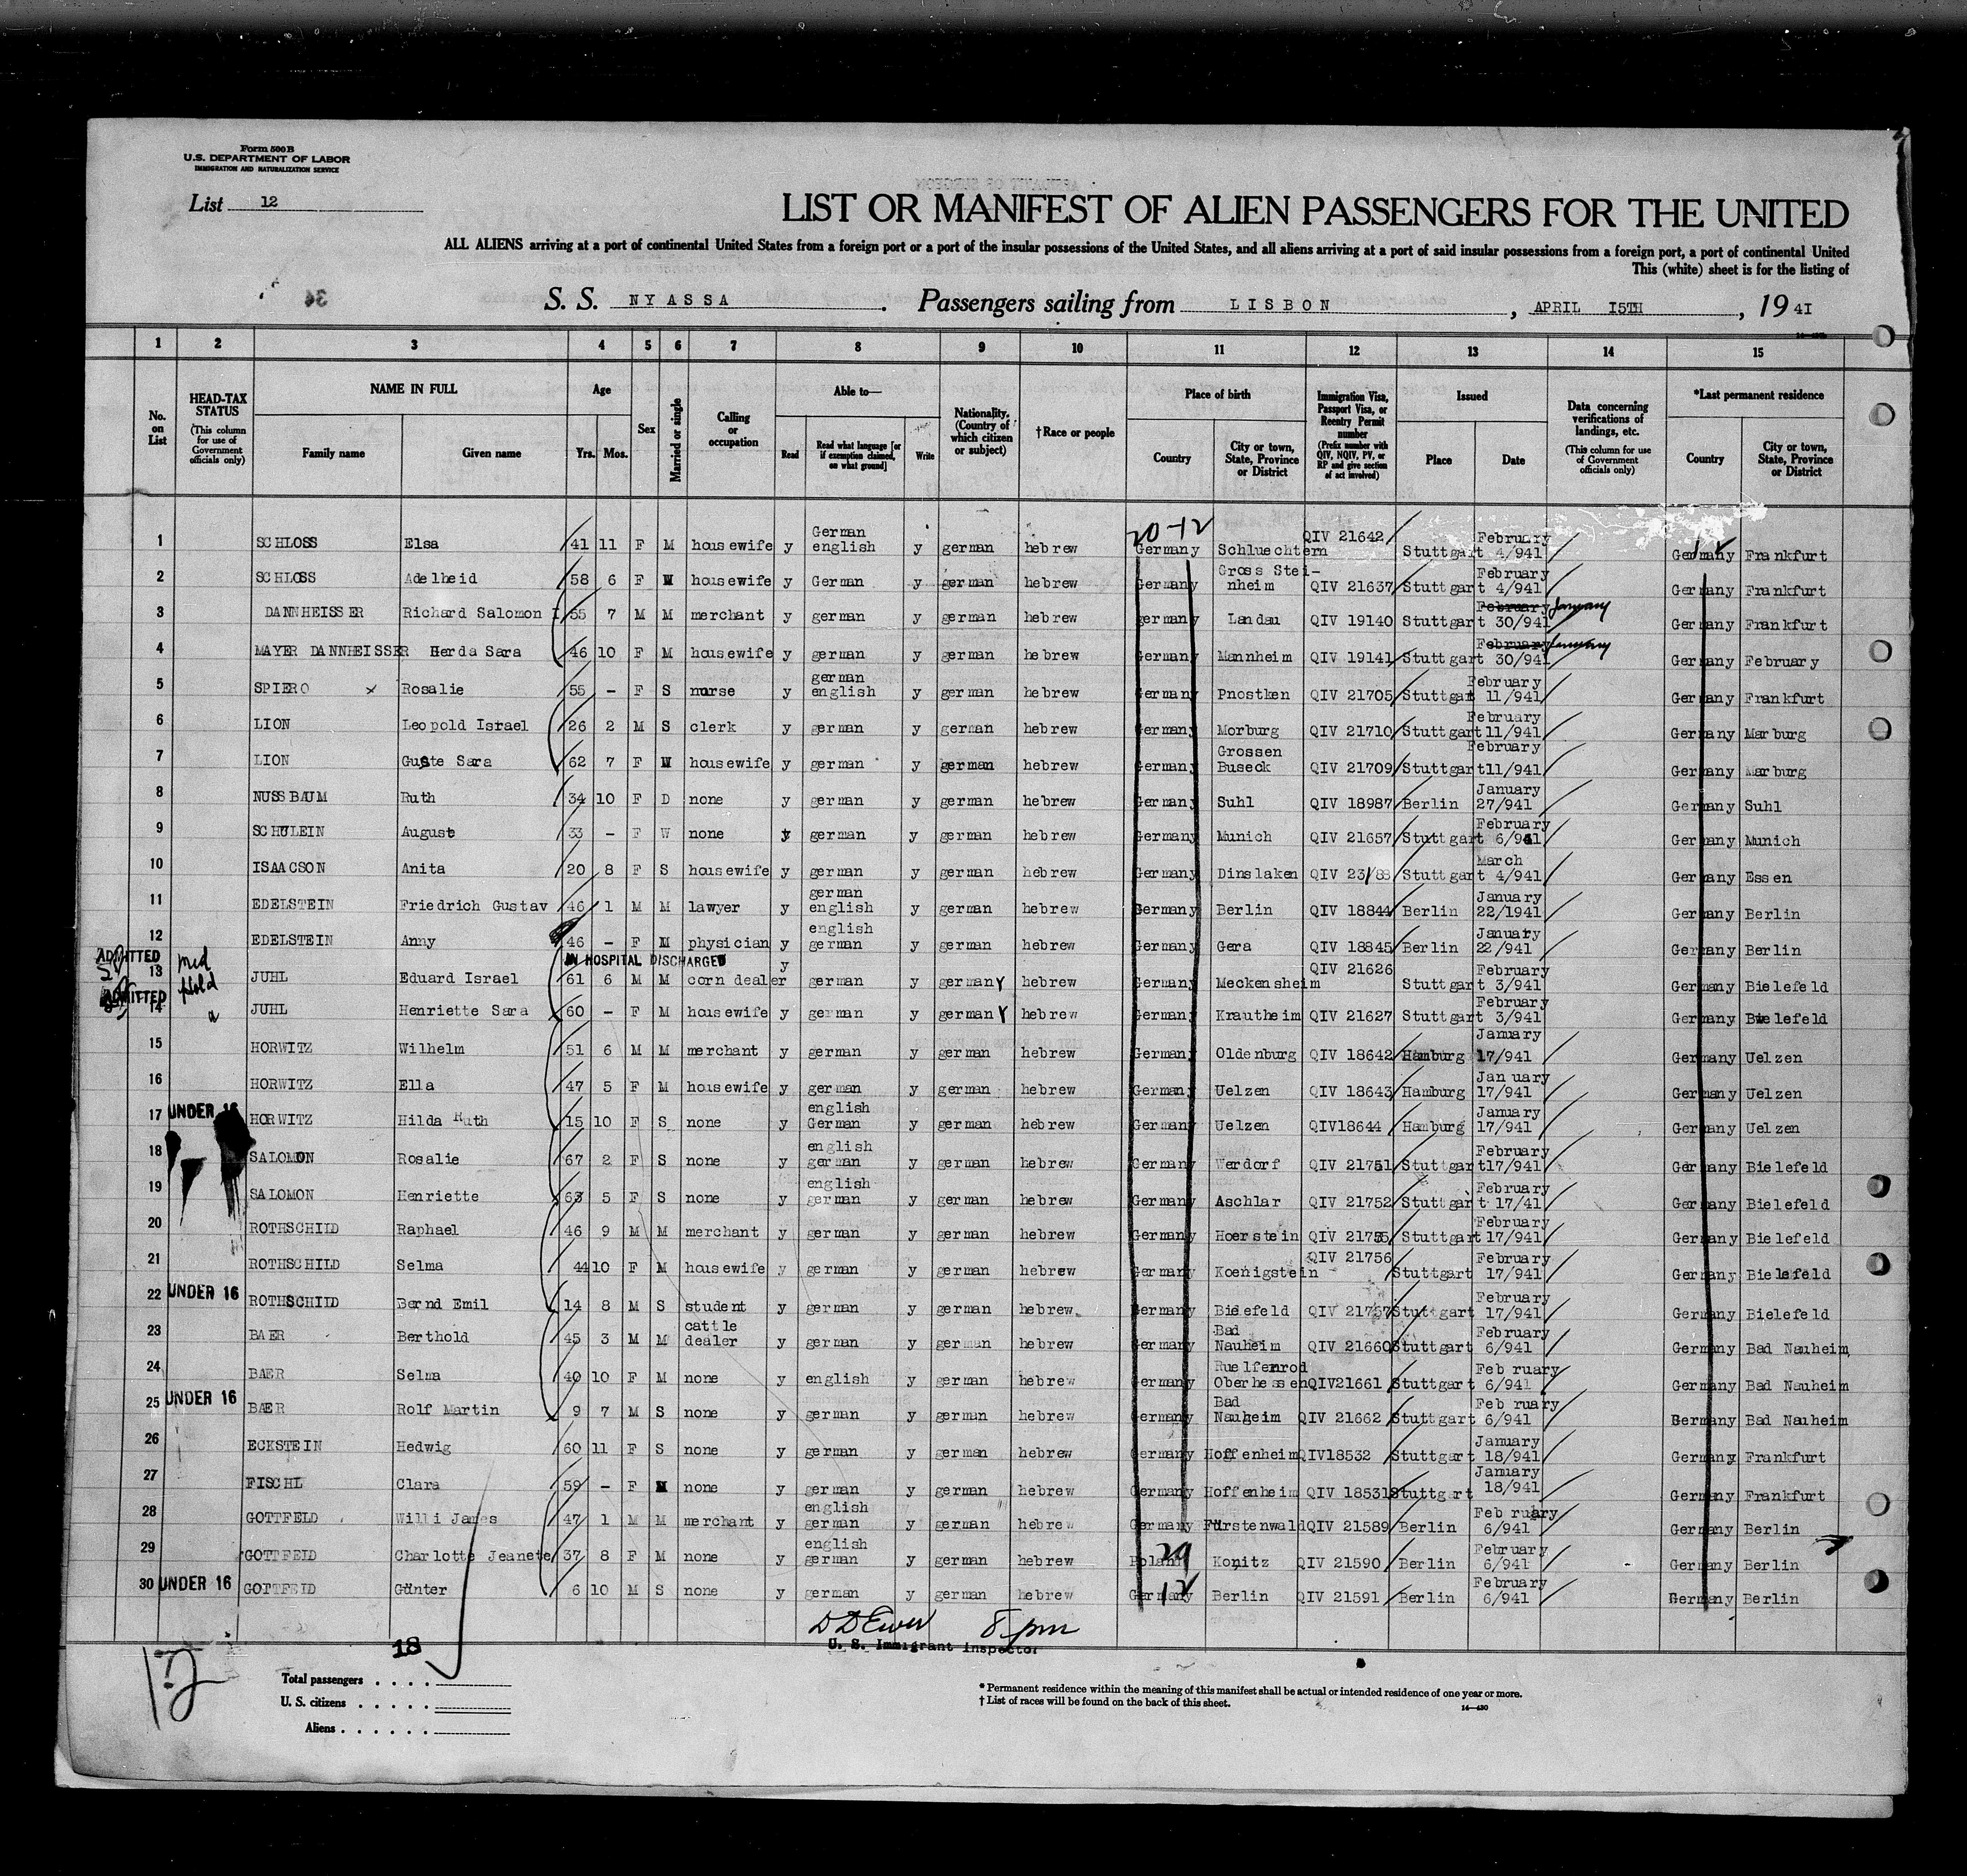 Form 500 B
U.S. DEPARTMENT OF LABOR
IMMIGRATION AND NATURALIZATION SERVICE
List 12
LIST OR MANIFEST OF ALIEN PASSENGERS FOR THE UNITED
ALL ALIENS arriving at a port of continental United States from a foreign port or a port of the insular possessions of the United States, and all aliens arriving at a port of said insular possessions from a foreign port, a port of continental United
This (white) sheet is for the listing of
S. S. NYASSA. Passengers sailing from LISBON, APRIL 15TH, 19 41
1 2 3 4 5 6 7 8 9 10 11 12 13 14 15
No. on List
HEAD-TAX STATUS (This column for use of Government officials only)
NAME IN FULL Family name Given name
Age Yrs. Mos.
Sex
Married or single
Calling or occupation
Able to— Read Read what language [or if exemption claimed, on what ground] Write
Nationality. (Country of which citizen or subject)
†Race or people
Place of birth Country City or town, State, Province or District
Immigration Visa, Passport Visa, or Reentry Permit number (Prefix number with QIV, NQIV, PV, or RP and give section of act involved)
Issued Place Date
Data concerning verifications of landings, etc. (This column for use of Government officials only)
*Last permanent residence Country City or town, State, Province or District
20-12
1 SCHLOSS Elsa 41 11 F M housewife y German english y german hebrew Germany Schluechtern QIV 21642 Stuttgart February 4/941 Germany Frankfurt
2 SCHLOSS Adelheid 58 6 F housewife y German y german hebrew Germany Gross Stei-nheim QIV 21637 Stuttgart February 4/941 Germany Frankfurt
3 DANNHEISSER Richard Salomon I 55 7 M M merchant y german y german hebrew germany Landau QIV 19140 Stuttgart February January 30/941 Germany Frankfurt
4 MAYER DANNHEISSER Herda Sara 46 10 F M housewife y german y german hebrew Germany Mannheim QIV 19141 Stuttgart February January 30/941 Germany February
5 SPIERO x Rosalie 55 - F S nurse y german english y german hebrew Germany Pnostken QIV 21705 Stuttgart February 11/941 Germany Frankfurt
6 LION Leopold Israel 26 2 M S clerk y german y german hebrew Germany Morburg QIV 21710 Stuttgart February 11/941 Germany Marburg
7 LION Guste Sara 62 7 F housewife y german y german hebrew Germany Grossen Buseck QIV 21709 Stuttgart February 11/941 Germany Marburg
8 NUSSBAUM Ruth 34 10 F D none y german y german hebrew Germany Suhl QIV 18987 Berlin January 27/941 Germany Suhl
9 SCHULEIN August 33 - F W none y german y german hebrew Germany Munich QIV 21657 Stuttgart February 6/941 Germany Munich
10 ISAACSON Anita 20 8 F S housewife y german y german hebrew Germany Dinslaken QIV Stuttgart March 4/941 Germany Essen
11 EDELSTEIN Friedrich Gustav 46 1 M M lawyer y german english y german hebrew Germany Berlin QIV 18844 Berlin January 22/1941 Germany Berlin
12 EDELSTEIN Anny 46 - F M physician y english german y german hebrew Germany Gera QIV 18845 Berlin January 22/941 Germany Berlin
ADMITTED IN HOSPITAL DISCHARGED
13 med Hold JUHL Eduard Israel 61 6 M M corn dealer y german y german y hebrew Germany Meckensheim QIV 21626 Stuttgart February 3/941 Germany Bielefeld
ADMITTED
14 JUHL Henriette Sara 60 - F M housewife y german y german y hebrew Germany Krautheim QIV 21627 Stuttgart February 3/941 Germany Bielefeld
15 HORWITZ Wilhelm 51 6 M M merchant y german y german hebrew Germany Oldenburg QIV 18642 Hamburg January 17/941 Germany Uelzen
16 HORWITZ Ella 47 5 F M housewife y german y german hebrew Germany Uelzen QIV 18643 Hamburg January 17/941 Germany Uelzen
17 UNDER 16 HORWITZ Hilda Ruth 15 10 F S none y english German y german hebrew Germany Uelzen QIV18644 Hamburg January 17/941 Germany Uelzen
18 SALOMON Rosalie 67 2 F S none y english german y german hebrew Germany Werdorf QIV 21751 Stuttgart February 17/941 Germany Bielefeld
19 SALOMON Henriette 63 5 F S none y english german y german hebrew Germany Aschlar QIV 21752 Stuttgart February 17/41 Germany Bielefeld
20 ROTHSCHILD Raphael 46 9 M M merchant y german y german hebrew Germany Hoerstein QIV 21755 Stuttgart February 17/941 Germany Bielefeld
21 ROTHSCHILD Selma 44 10 F M housewife y german y german hebrew Germany Koenigstein QIV 21756 Stuttgart February 17/941 Germany Bielefeld
22 UNDER 16 ROTHSCHILD Bernd Emil 14 8 M S student y german y german hebrew. Germany Bielefeld QIV 21757 Stuttgart February 17/941 Germany Bielefeld
23 BAER Berthold 45 3 M M cattle dealer y german y german hebrew Germany Bad Nauheim QIV 21660 Stuttgart February 6/941 Germany Bad Nauheim
24 BAER Selma 40 10 F M none y english y german hebrew Germany Ruelfenrod Oberhessen QIV21661 Stuttgart February 6/941 Germany Bad Nauheim
25 UNDER 16 BAER Rolf Martin 9 7 M S none y german y german hebrew Germany Bad Nauheim QIV 21662 Stuttgart February 6/941 Germany Bad Nauheim
26 ECKSTEIN Hedwig 60 11 F S none y german y german hebrew Germany Hoffenheim QIV18532 Stuttgart January 18/941 Germany Frankfurt
27 FISCHL Clara 59 - F none y german y german hebrew Germany Hoffenheim QIV 18531 Stuttgart January 18/941 Germany Frankfurt
28 GOTTFELD Willi James 47 1 M M merchant y english german y german hebrew Germany Fürstenwald QIV 21589 Berlin February 6/941 Germany Berlin
29 GOTTFEID Charlotte Jeanete 37 8 F M none y english german y german hebrew Poland 29 Konitz QIV 21590 Berlin February 6/941 Germany Berlin
30 UNDER 16 GOTTFEID Günter 6 10 M S none y german y german hebrew Germany 12 Berlin QIV 21591 Berlin February 6/941 Germany Berlin
D D Ewer 8 pm
U. S. Immigrant Inspector
18
12
Total passengers
U. S. citizens
Aliens
* Permanent residence within the meaning of this manifest shall be actual or intended residence of one year or more.
† List of races will be found on the back of this sheet.
14—430